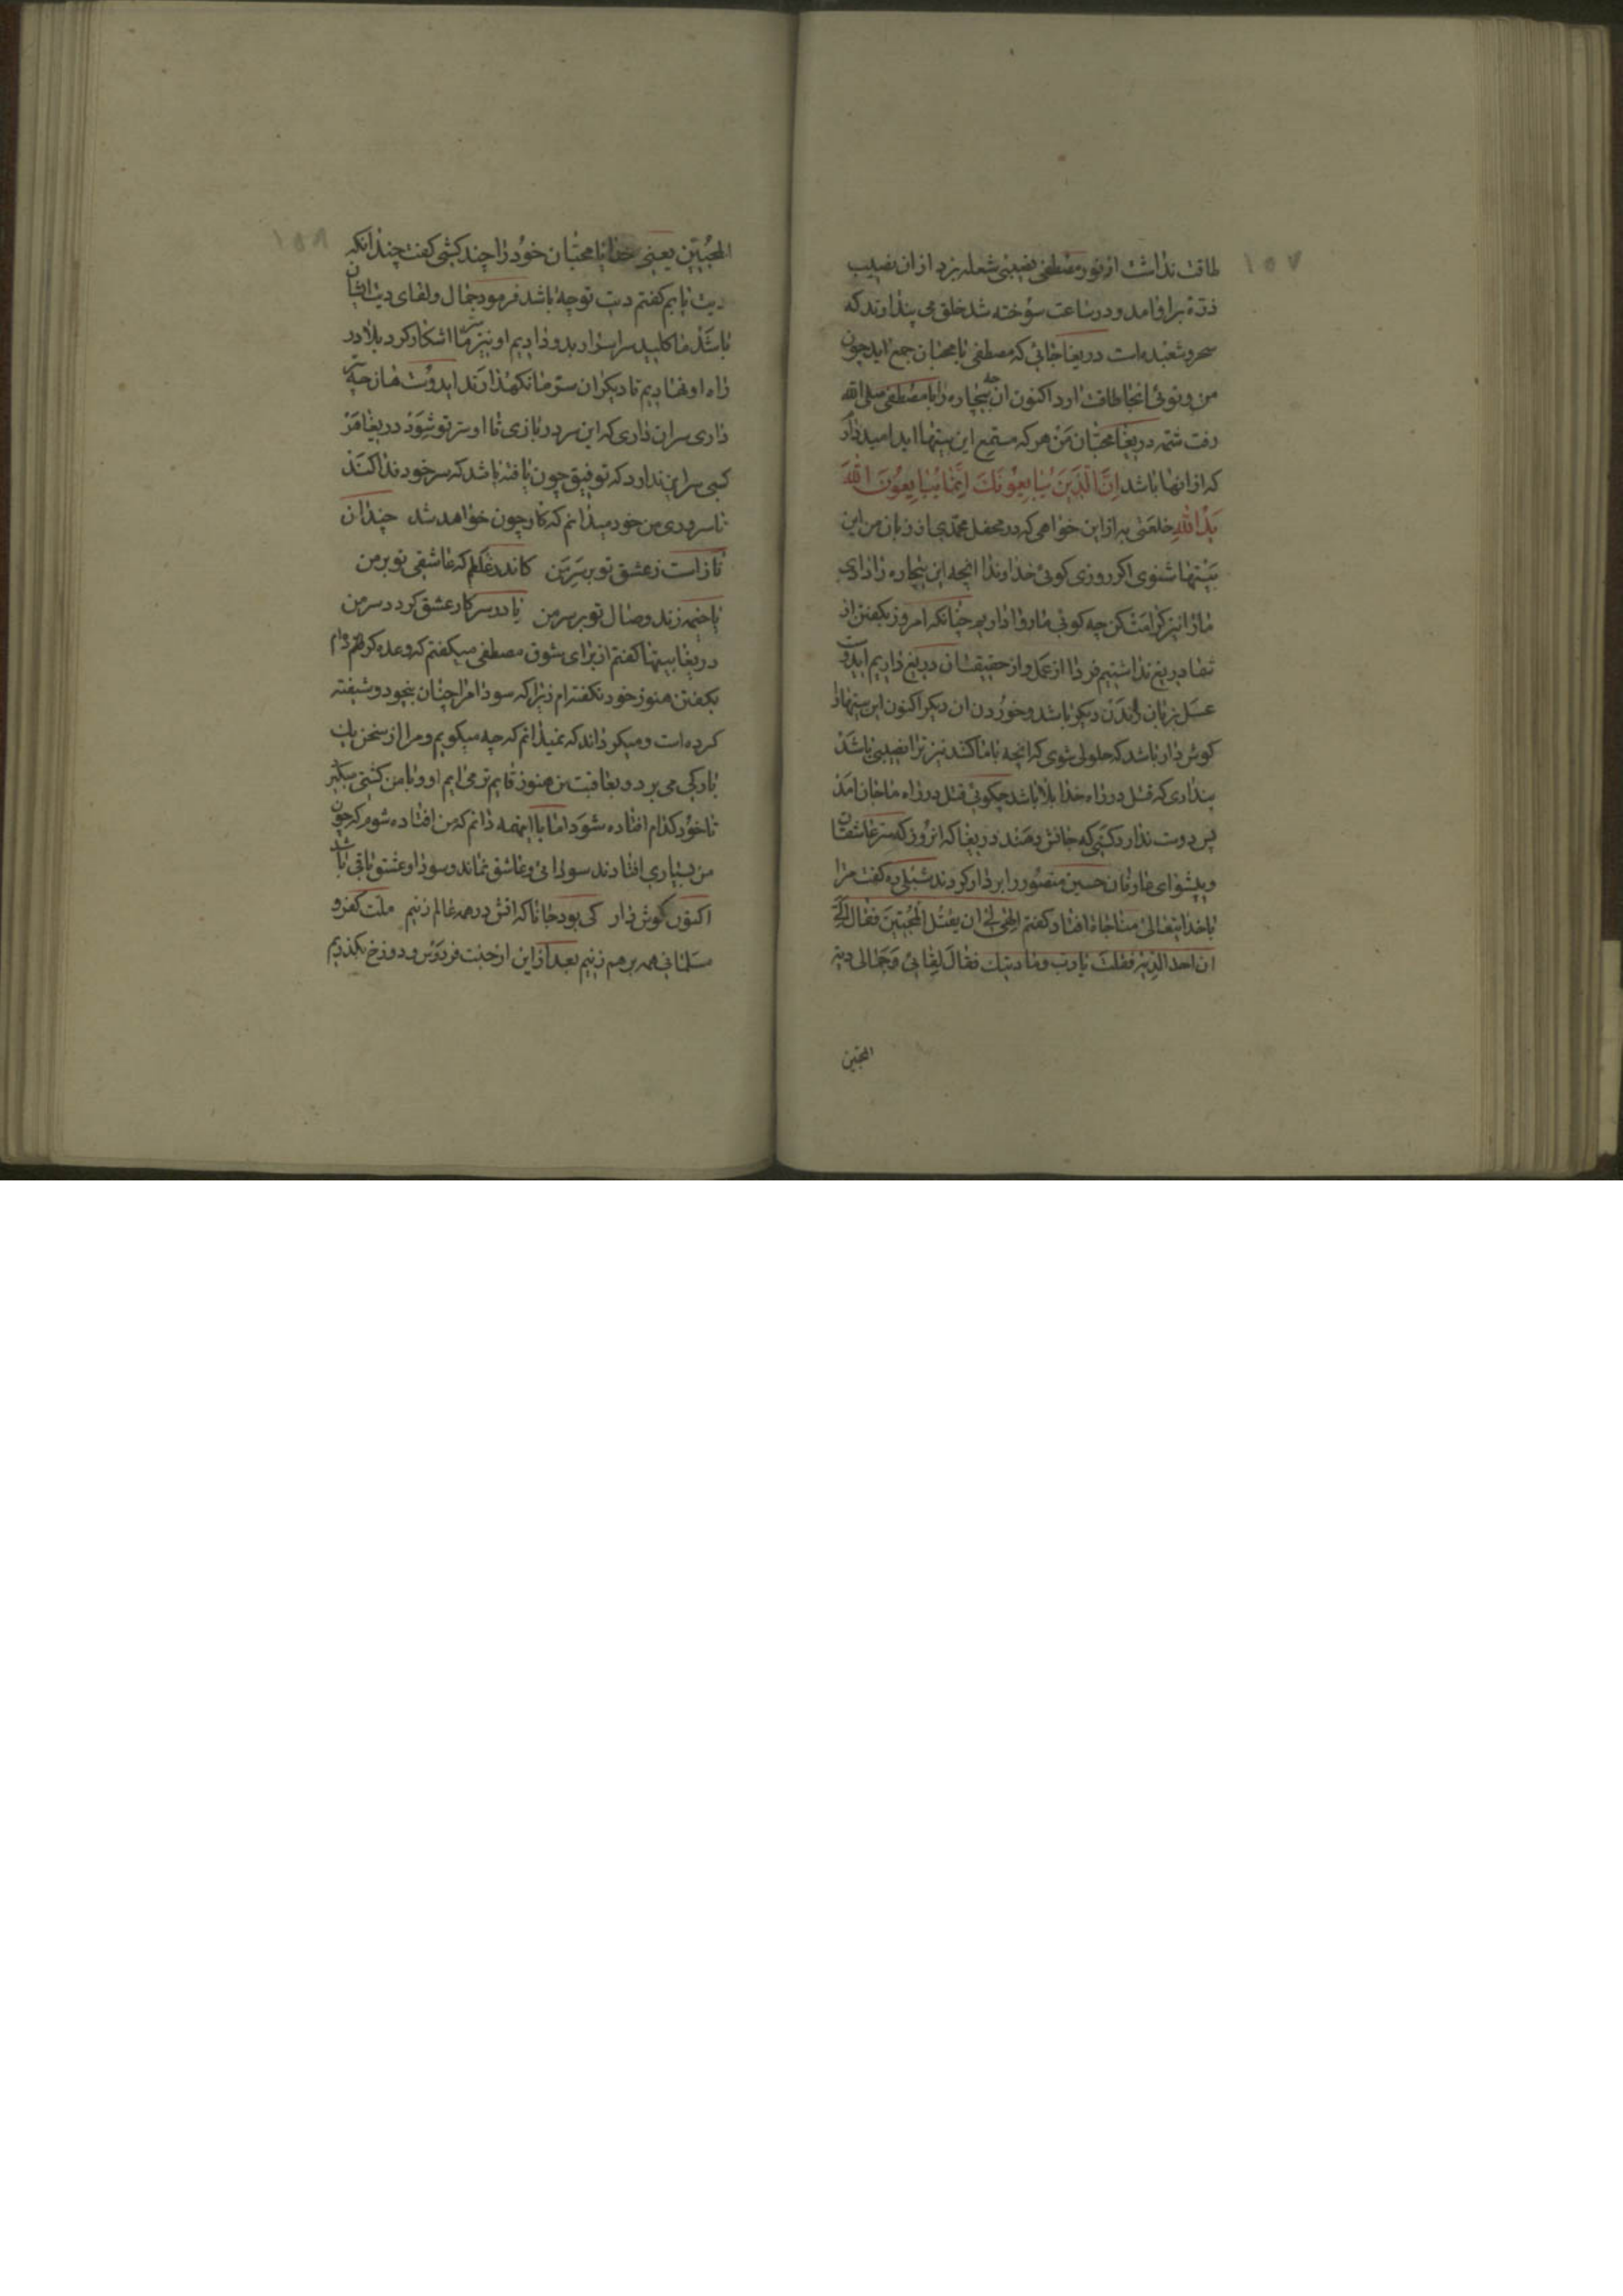 ۱۵۷
طاقت نداشت از نور مصطفی نصیبی شعله بزد از ان نصیب
ذرّه براو امد و در ساعت سوخته شد خلق می پندارند که
سحر و شعبده است دریغا جائی که مصطفی با محبان جمع اید چون
من و توئی انجا طاقت ارد اکنون ان بیچاره را با مصطفی صلی الله
رفت شمه دریغا محبّان من هر که مستمع این بیتها اید امید دارد
که از انها باشد اِنَّ الَّذینَ یُبَایِعُونَکَ اِنَّمَا یُبَایِعُونَ اللّٰهَ
یَدُ اللّٰهِ خلعتی به از این خواهی که در محفل محمّدی از زبان من این
بیتها شنوی اکر روزی کوئی خداوندا انچه این بیچاره را دادی
مارا نیز کرامت کن چه کوئی ما روا داریم چنانکه امروز بکفتن از
شما دریغ نداشتیم فردا از عمل و از حقیقتشان دریغ داریم ایدوست
عسل بزبان راندن دیکر باشد و خوردن ان دیکر اکنون این بیتها را
کوش دار باشد که حلولی شوی که انچه با ما کنند نیز ترا نصیبی باشد
پنداری که قتل در راه خدا بلا باشد چکوئی قتل در راه ما جان امد
پس دوست ندارد کسی که جانش دهند دریغا که انروز که سر عاشقان
و پیشوای عارفان حسین منصور را بر دار کردند شبلی ره کفت مرا
با خدایتعالی مناجات افتاد کفتم الهی الی ان یقتل المحبّین فقال الی
ان اجد الدیة فقلت یا رب وما دیتک فقال لقائی وجمالی دیة
المحبّین
۱۵۸
المحبّین یعنی خدایا محبّان خود را چند کشی کفت چندانکه
دیت یابم کفتم دیت تو چه باشد فرمود جمال و لقای دیت ایشان
باشد ما کلید سر اسرار بدو دادیم او نیز سرّ ما اشکار کرد بلا در
راه او نهادیم تا دیکران سرّ ما نکهدارند ایدوست هان چه سر
داری سر ان داری که این سر دربازی تا او سر تو شود دریغا هر
کسی سر این ندارد که توفیق چون یافته باشد که سر خود فدا کند
تا سروری من خود میدانم که کار چون خواهد شد چندان
ناز است ز عشق تو بر سر من کاندر غلطم که عاشقی تو بر من
یا خیمه زند وصال تو بر سر من یا در سر کار عشق کردد سر من
دریغا بیتها کفتم از برای شوق مصطفی میکفتم که وعده کرده ام
بکفتن هنوز خود نکفته‌ام زیرا که سودا مرا چنان بیخود و شیفته
کرده است و میکرداند که نمیدانم که چه میکویم و مرا از سخن بیک
بارکی می برد و بعاقبت من هنوز قایم تر می ایم او و با من کشتی میکیرد
تا خود کدام افتاده شود اما با اینهمه دانم که من افتاده شوم که چون
من بسیاری افتادند سودائی و عاشق نماند و سودا و عشق باقی باشد
اکنون کوش دار کی بود جانا که اتش در همه عالم زنیم ملت کفر و
مسلمانی همه بر هم زنیم بعد از این از جنت فردوس و دوزخ بکذریم